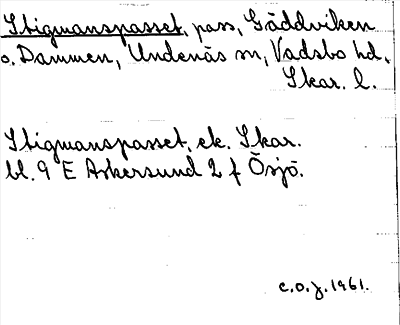 Stigmanspasset, pass, Gäddviken
o. Dammen, Undenäs sn, Vadsbo hd,
Skar. l.
Stigmanspasset. ek. Skar.
bl. 9 E Askersund 2 f Ösjö.
C.O.J. 1961.